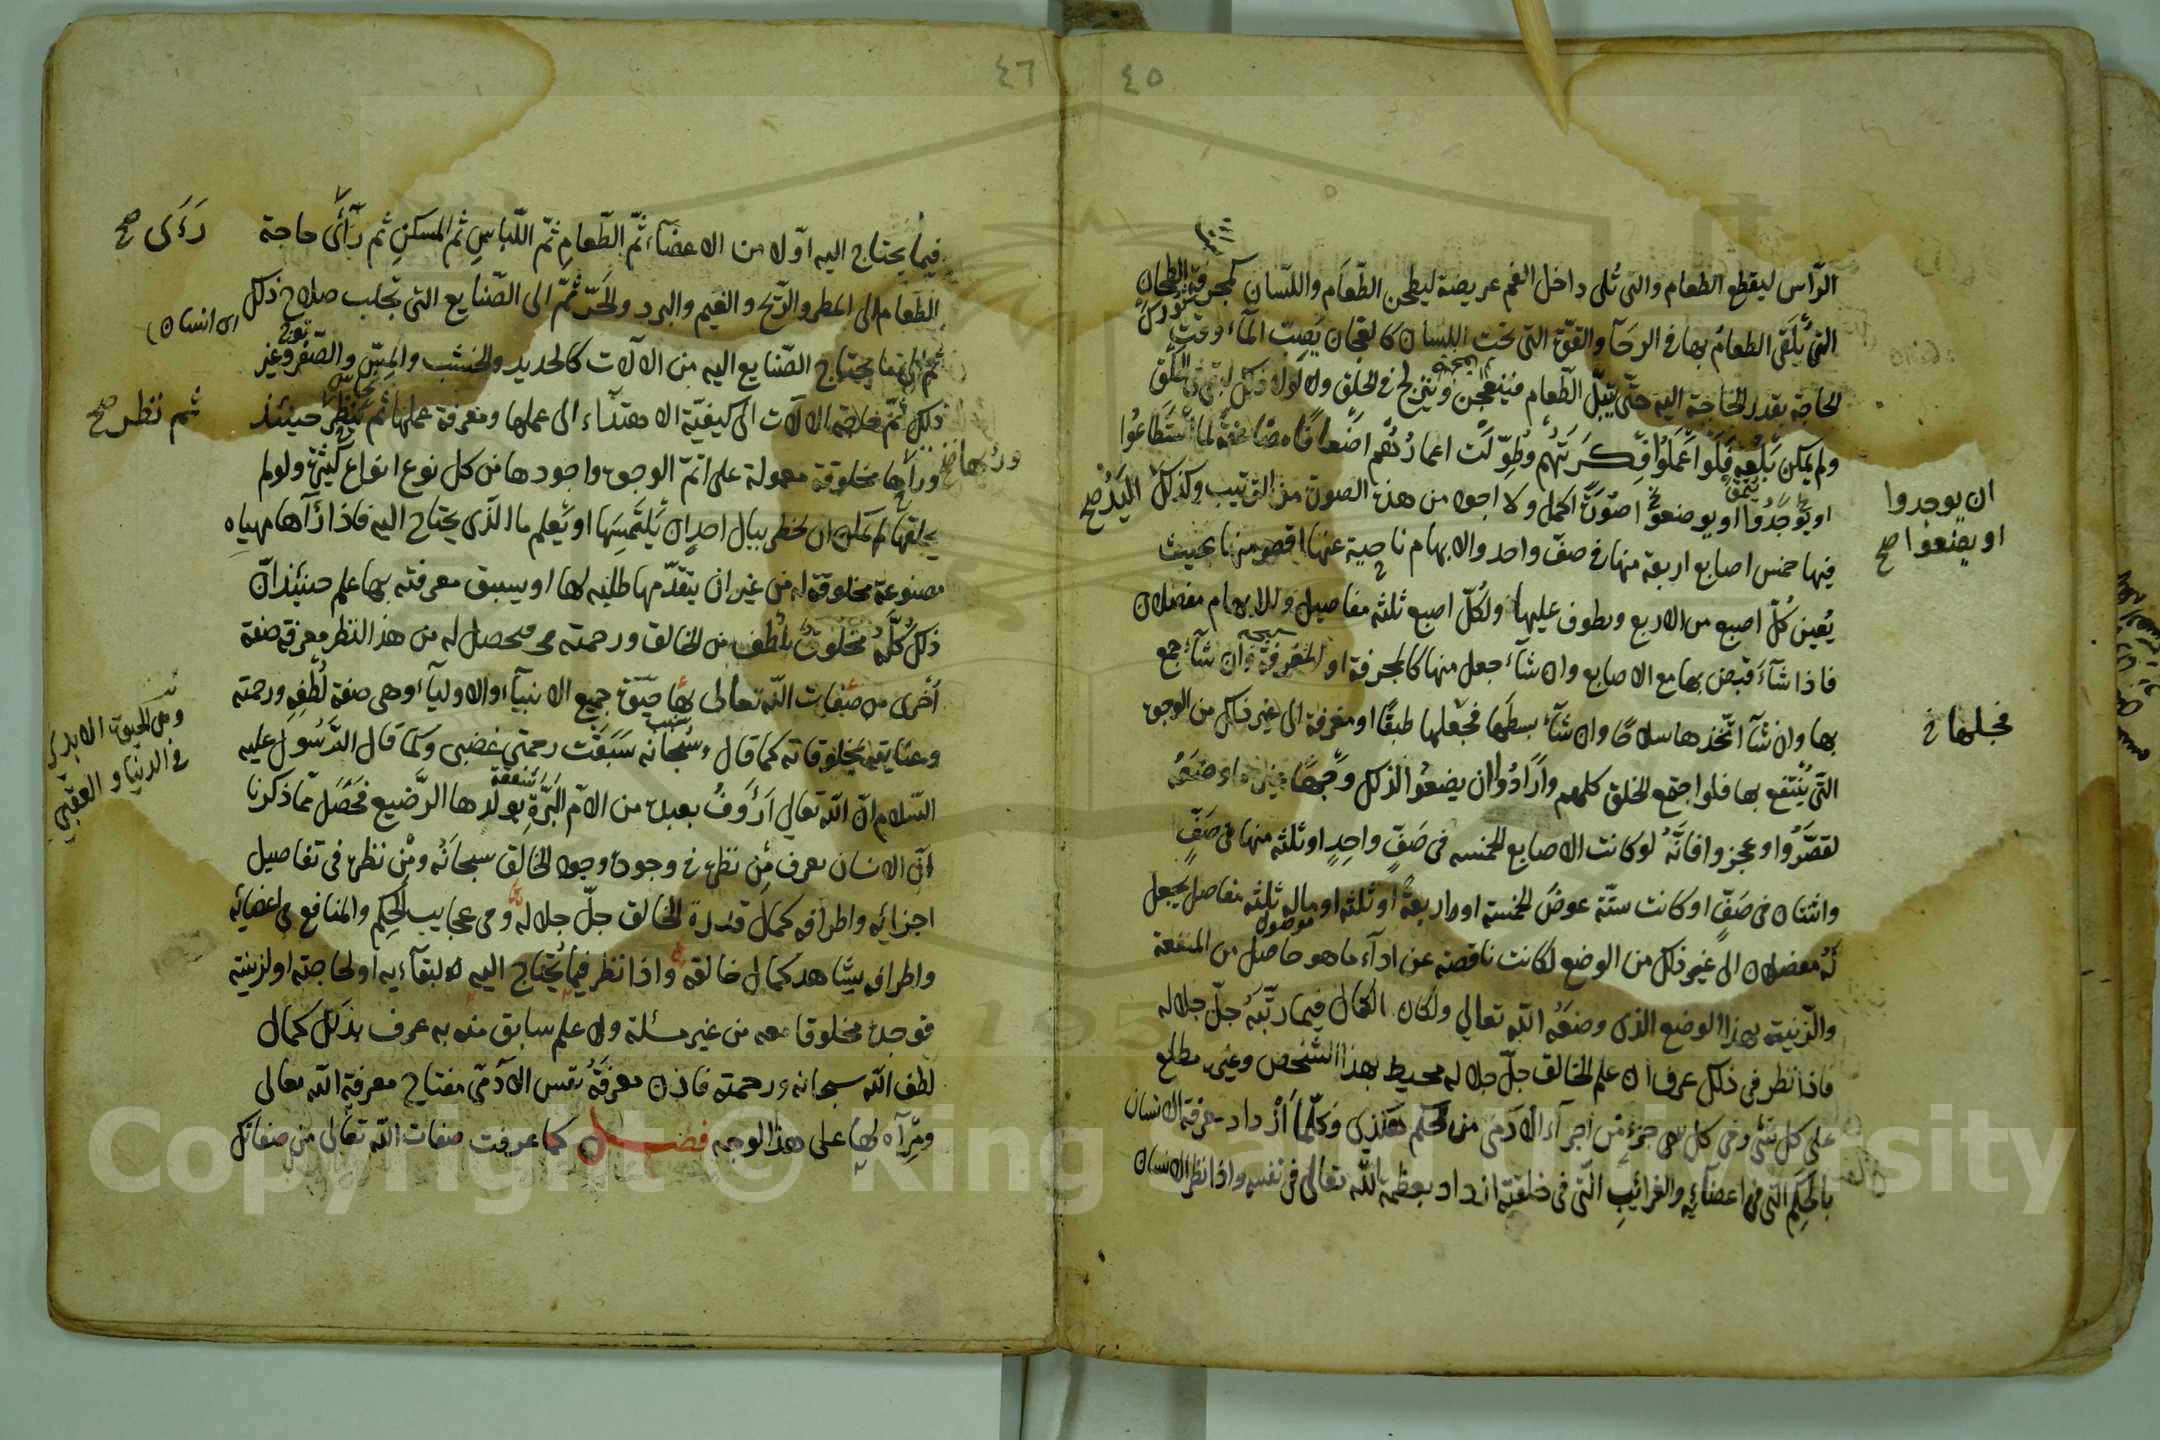 ٤٥
الرّأس ليقطع الطعام والتى تُلى داخل الفم عريضة ليطحن الطّعام واللسّان كمجرفة الطحان
التى يُلَقى الطعامُ بها فى الرحَا والقوّة التى تحت اللسان كالعجان يصبّ المآء وقت
الحاجة بقدر الحاجة اليه حتّى يبّل الطّعام فينعجن وينزلج فى الحلق ولا لولا ذلك لبقى فى الحلق
ولم يمكن بَلْعه فَلَوْ أعْمَلُوا فِكرتهم وطُوِّلَت اعمارُهُم اضعافًا مضاعفة لما اسْتَطَاعُوا
او يوجَدُوا او يوضعوا صُوَرًا اكمل ولا اجود من هذه الصورة من الترتيب وكذلك اليَدُ صح
فيها خمس اصابع اربعة منها فى صفّ واحد والابهام ناحية عنها اقصر منها بحيث
يُعين كلّ اصبع من الاربع ويطوف عليها ولكلّ اصبع ثلثه مفاصيل وللابهام مفصلان
فاذا شآء قبض بها مع الاصابع وان شآء جعل منها كالمجرفة او المغرفة وان شآء جمع
بها وان شآ اتّخذها سلاحًا وان شآء بسطها فجعلها طبقًا او مغرفة الى غير ذلك من الوجوه
التى يُنْتفع بها فلو اجتمع الخلق كلهم وارَادُوا ان يضعُوا لذلك وَجْهًا غير ما وضَعَهُ
لقصَّرُوا وعجزوا فانَّهُ لو كانت الاصابع الخمسه فى صَفّ واحِدٍ او ثلثه منها فى صَفٍّ
واثنان فى صَفٍّ او كانت ستّة عوضَ الخمسة او اربعة او ثلثه او ماله ثلثه مفاصل يجعل
لَهُ مفصلان الى غير ذلك من الوضع لكانت ناقصة عن ادآء ما هو حاصل من المنفعة
والزّينة بهذا الوضع الذى وضعَهُ الله تعالي ولكان الكمال فيما رتّبَهُ جلّ جلاله
فاذا نظر فى ذلك عرف ان علم الخالق جلّ جلاله محيط بهذا الشخص وغيره مطلع
على كل شئ وفى كل جزء من اجزآء الآدَمى من الحكم هكذى وكلّما ازداد معرفة الانسان
بالحِكَم التى فى اعضآئه والغرائب الّتى فى خلقته ازداد بعظمة الله تعالى فى نفسه واذا نظر الانسان
ان يوجدوا
او يضعوا صح
فجعلها خ
٤٦
فيما يحتاج اليه اوّلا من الاعضآء ثمّ الطّعام ثمّ اللّباسِ ثم المسكن ثم رأى حاجة
الطعام الى المطر والرّيح والغيم والبرد والحَرّ ثمّ الى الصّنايع التى تجلب صلاح ذلك
ثم الى ما يحتاج الصّنايع اليه من الالآت كالحديد والخشب والمِسّ والصّفر وغير
ذلك ثمّ الالآت الى كيفيّة الاهتدآء الى عملها ومعرفة عملها ثم نظر حينئذ
ورآها مخلوقة معمولة على اتمّ الوجوه واجودها من كل نوع انواع كثيرة ولو لم
يخلقها لم يمكن ان تخطر ببال احدٍ ان يَلْتَمِسَها او يَعلم ما الّذى يحتاج اليه فاذا رآها مهياه
مصنوعة مخلوقة له من غير ان يتقدّمها طلبه لها او يسبق معرفته بها علم حينئذ انّ
ذلك كُلّهُ مخلوق بلطف من الخالق ورحمته فيحصل له من هذا النظر معرفة صفة
أُخرى من صفات الله تعالى بها حيوة جميع الانبيآء والاوليآء وهى صفة لُطْفِهِ ورحمته
وعنايته بمخلوقاته كما قال سُبحانه سَبَقَتْ رحمتي غضبى وكما قال الرَّسُول عليه
السّلام انّ الله تعالي اَرْؤُفُ بعبده من الام البَرَّةِ بولدها الرَّضيع فحَصَل ممّا ذكرنا
انّ الانسان يعرف مِن نظره فى وجوده وجود الخالق سبحانَهُ ومِن نظره فى تفاصيل
اجزايه واطرافه كمال قدرة الخالق جلّ جلاله ومن عجايب الحِكَم والمنافع فى اعضائه
واطرافه يشاهد كمال علم خالقه واذا نظر فيما يُحتاج اليه لابقآءيه او لحاجته او لزينته
فوجده مخلوقا معه من غير مسئلة ولا علم سابق منه به عرف بذلك كمال
لطف الله سبحانه ورحمته فاذن معرفَةُ نفس الآدمّى مفتاح معرفة الله تعالى
ومِرآه لها على هذا الوجه فصـل كما عرفت صفات الله تعالى من صفاتك
رَءَى صح
اى انسان
ثم نظر صح
وهى الحيوة الابدى
فى الدنيا و العقبى